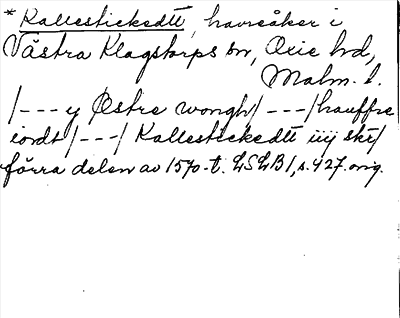 * Kallestickedtt, havreåker i
Västra Klagstorps sn, Oxie hd,
Malm. l.
/--- y Østre wongh/ ---/ hauffre
iordt /---/ Kallestickedtt iiij skr/
förra delen av 1570-t. LSLB 1, s. 427. orig.